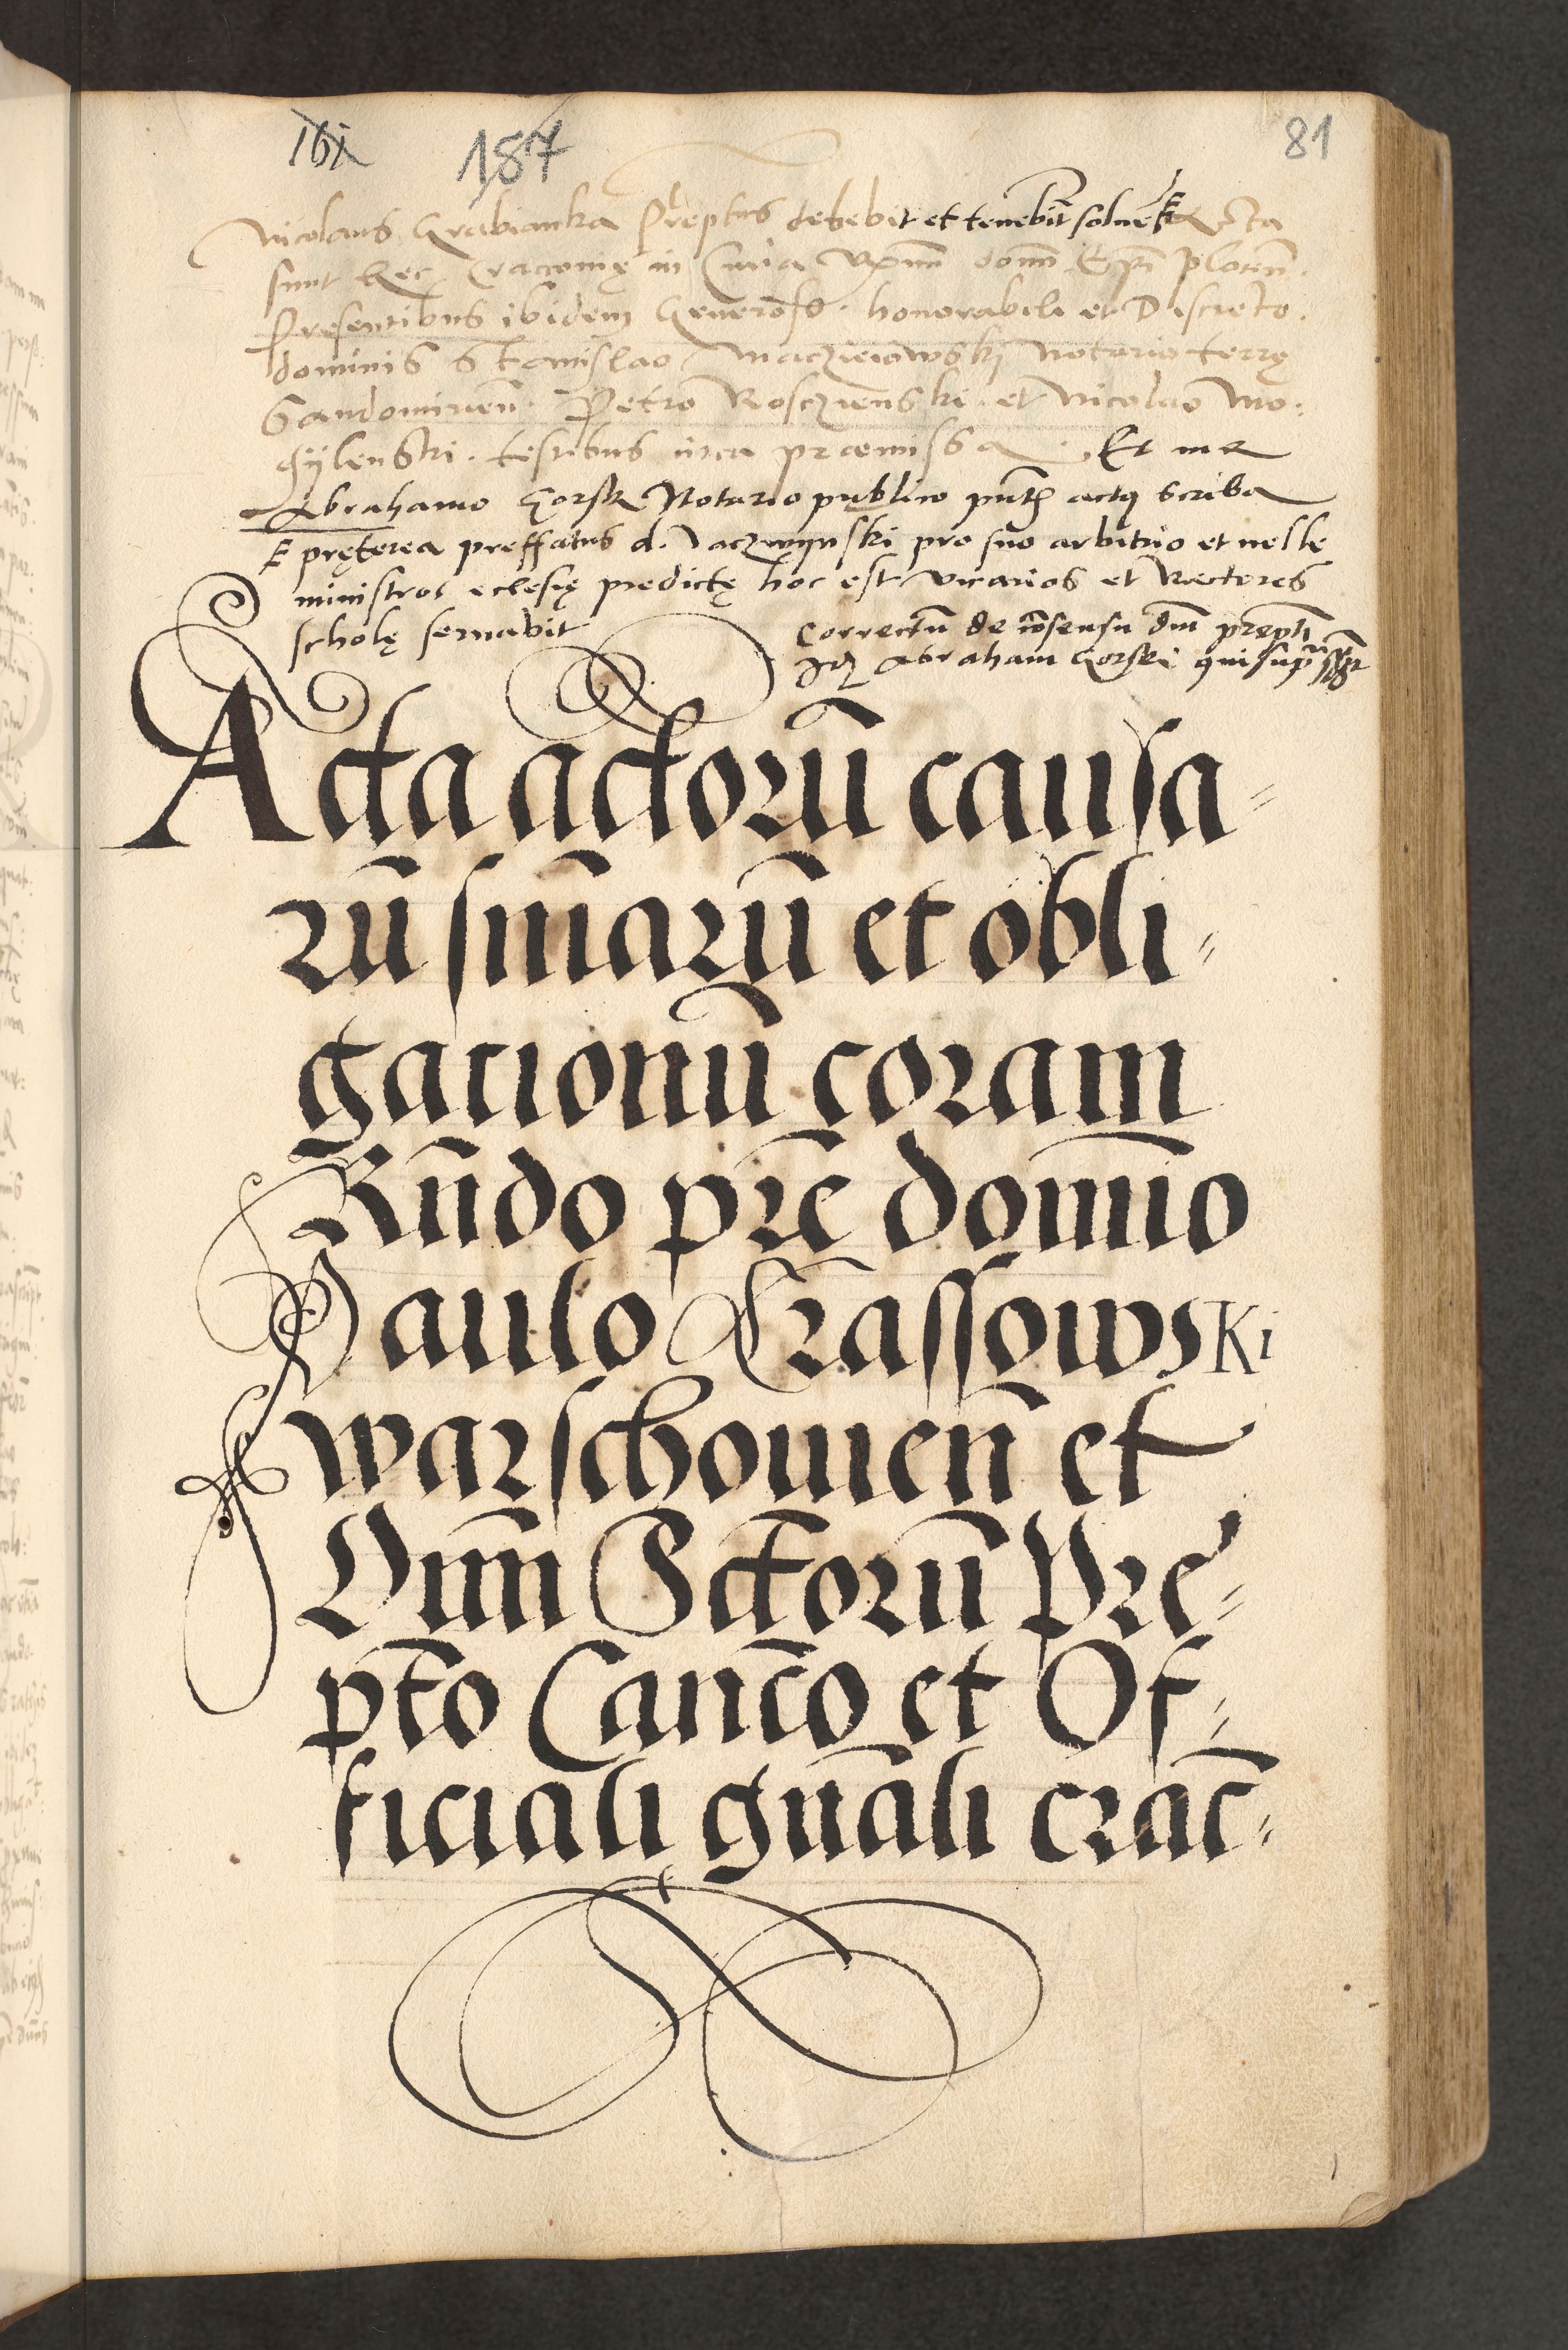 161 187 81
Nicolaus Grabianka Preptus debebit et tenebit solue Acta
sunt hec Cracouię in Curia Rx̃mi domi Epi Plocen̄.
Presentibus ibidem Generoso. honorabili et Discreto.
dominis Stanislao Maczieiowski Notario terrę
Sandomirien̄. Petro Rosczienski. et Nicolao Mo:
gÿlenski. testibus circa præmissa. Et me
Abrahamo Gorski Notario publico actq scriba
pręterea preffatus d. Jaczmynski pro suo arbitrio et uelle
ministros eclesię predictę hoc est vicarios et Rectores
scholę seruabit
Correctũ de cõsensu dñi prepti
Idẽ Abraham Gorski qui supra
Acta actorũ causa=
rũ sñiarũ et obli=
gacionũ coram
Rñdo pr̃e domĩo
Paulo Crassowski
warschouien̄ et
Omñ Sctorũ Pre=
pto Canc̃o et Of=
ficiali gñali crac̄=